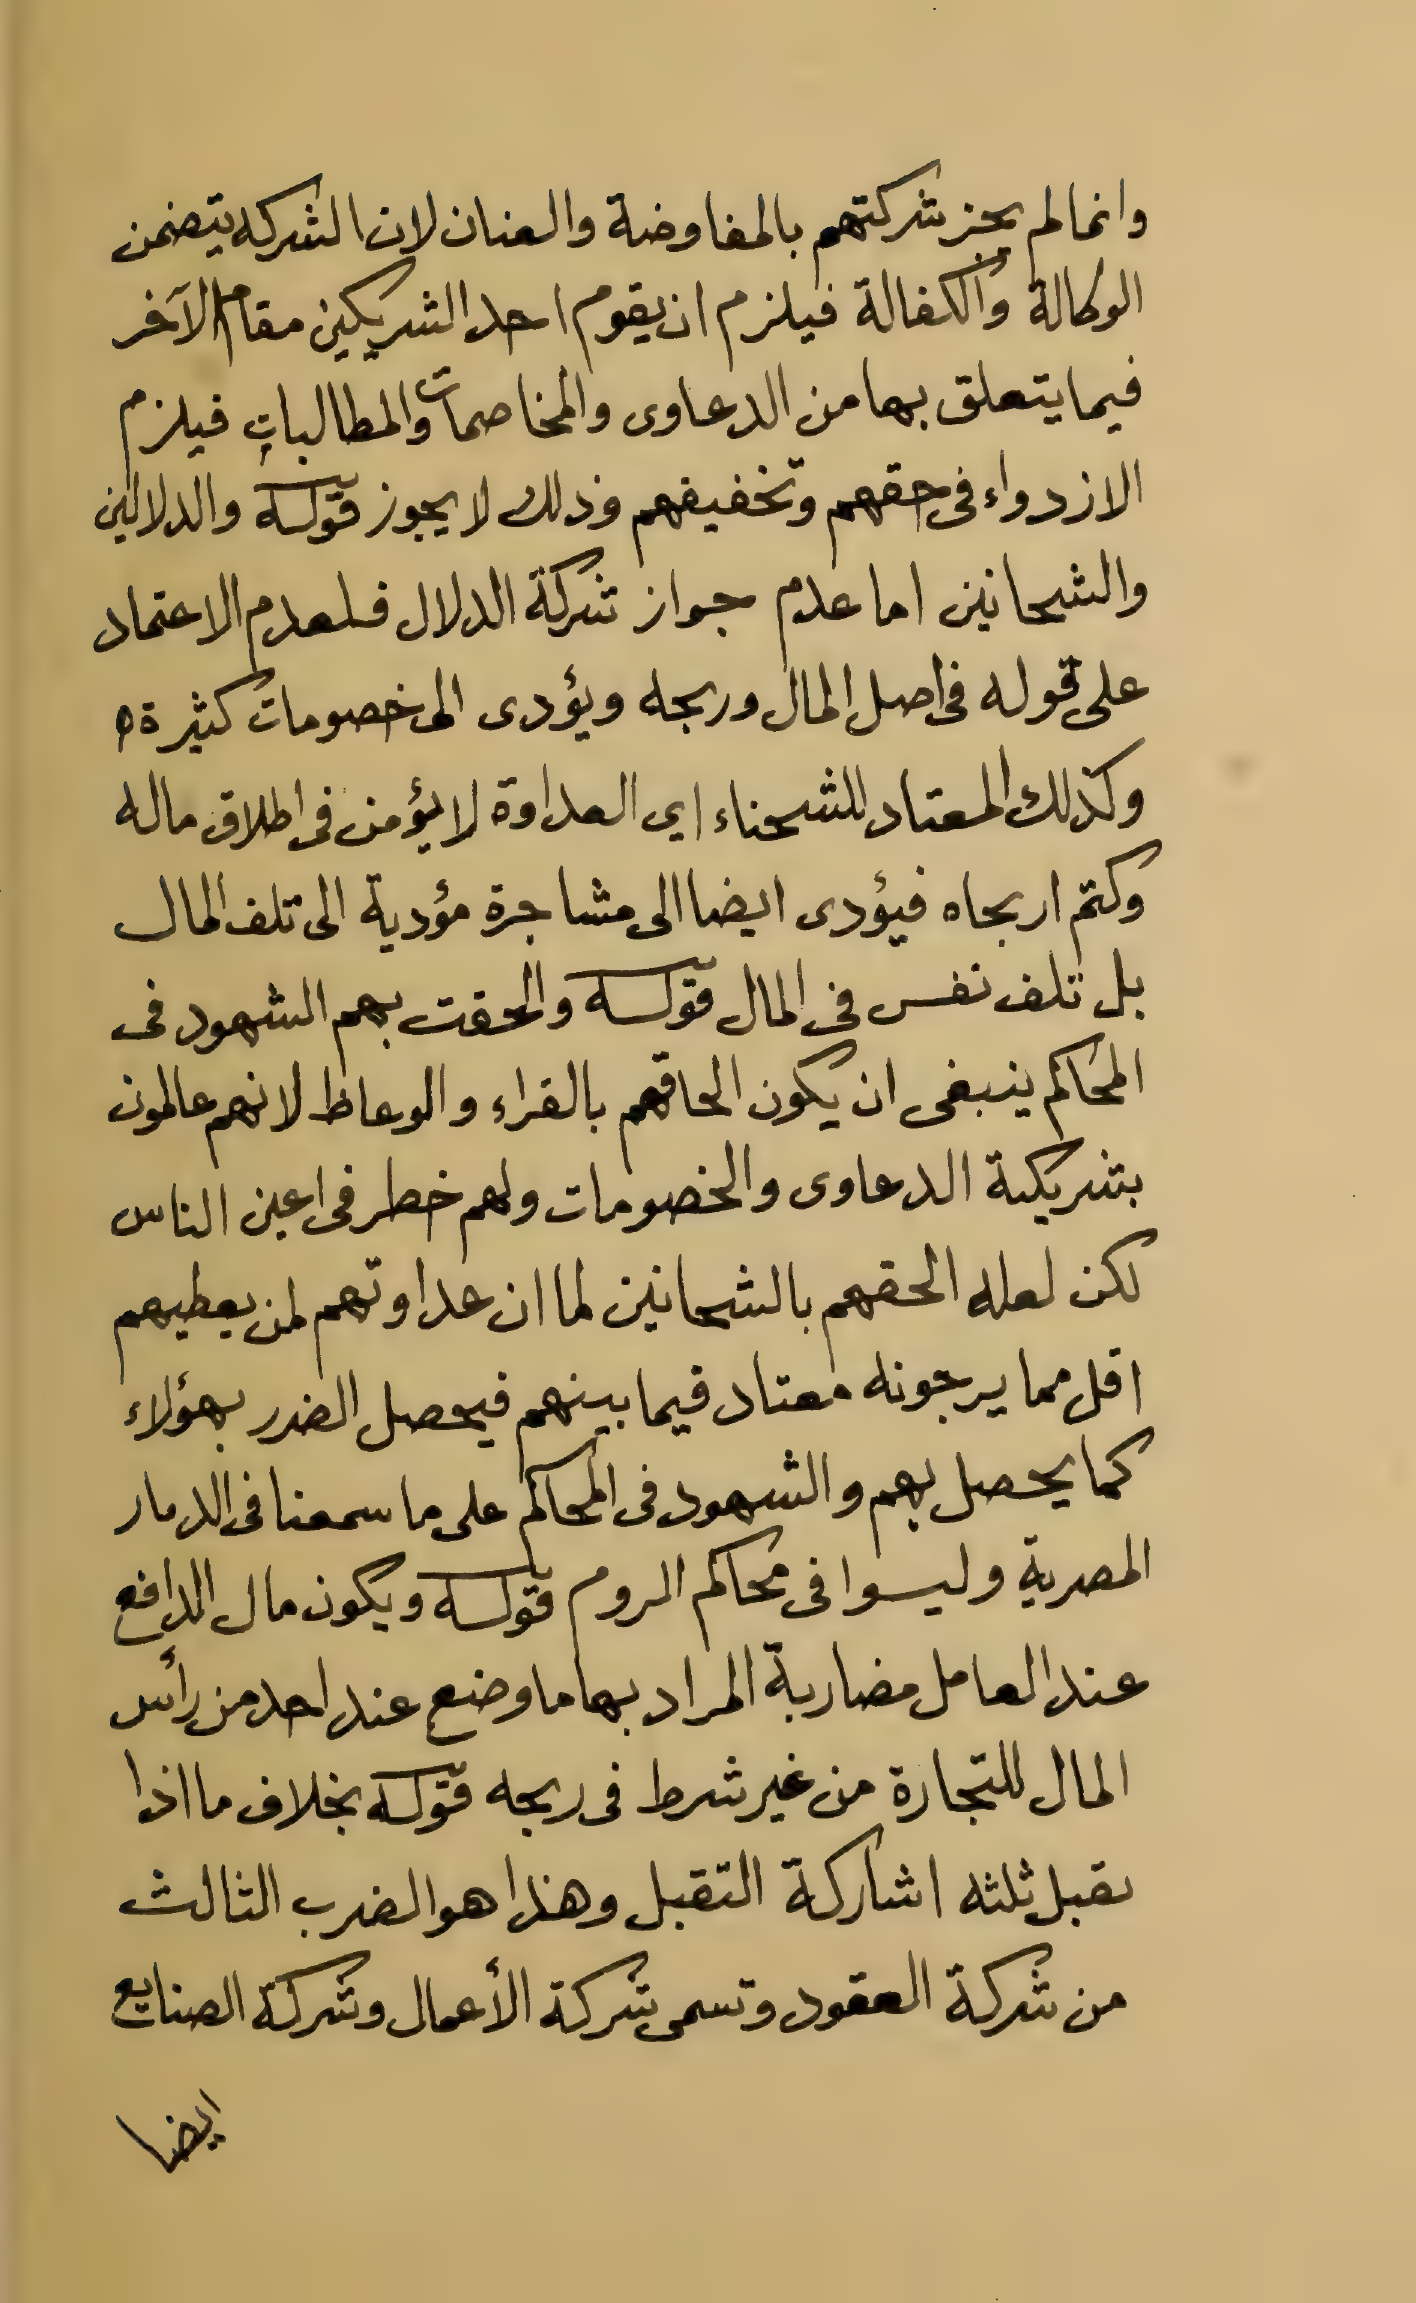 وانما لم يجز شركتهم بالمفاوضة والعنان لان الشركه يتضمن
الوكالة والكفالة فيلزم ان يقوم احد الشريكين مقام الآخر
فيما يتعلق بها من الدعاوى والمخاصمات والمطالبات فيلزم
الازدواء فى حقهم وتخفيفهم وذلك لا يجوز قوله والدلالين
والشحانين اما عدم جواز شركة الدلال فلعدم الاعتماد
على قوله فى اصل المال وربحه ويؤدى الى خصومات كثيرة ه
وكذلك المعتاد للشحناء اى العداوة لا يؤمن فى اطلاق ماله
وكتم ارباحه فيؤدى ايضا الى مشاجرة مؤدية الى تلف المال
بل تلف نفس فى المال قوله والحقت بهم الشهود فى
المحاكم ينبغى ان يكون الحاقهم بالقراء والوعاظ لانهم عالمون
بتشريكية الدعاوى والخصومات ولهم خطر فى اعين الناس
لكن لعله الحقهم بالشحانين لما ان عداوتهم لمن يعطيهم
اقل مما يرجونه معتاد فيما بينهم فيحصل الضرر بهؤلاء
كما يحصل بهم والشهود فى المحاكم على ما سمعنا فى الديار
المصرية وليسوا فى محاكم الروم قوله ويكون مال الدافع
عند العامل مضاربة المراد بها ما وضع عند احد من رأس
المال للتجارة من غير شرط فى ربحه قوله بخلاف ما اذا
تقبل ثلثه اشاركة التقبل وهذا هو الضرب الثالث
من شركة العقود وتسمى شركة الأعمال وشركة الصنايع
ايضا